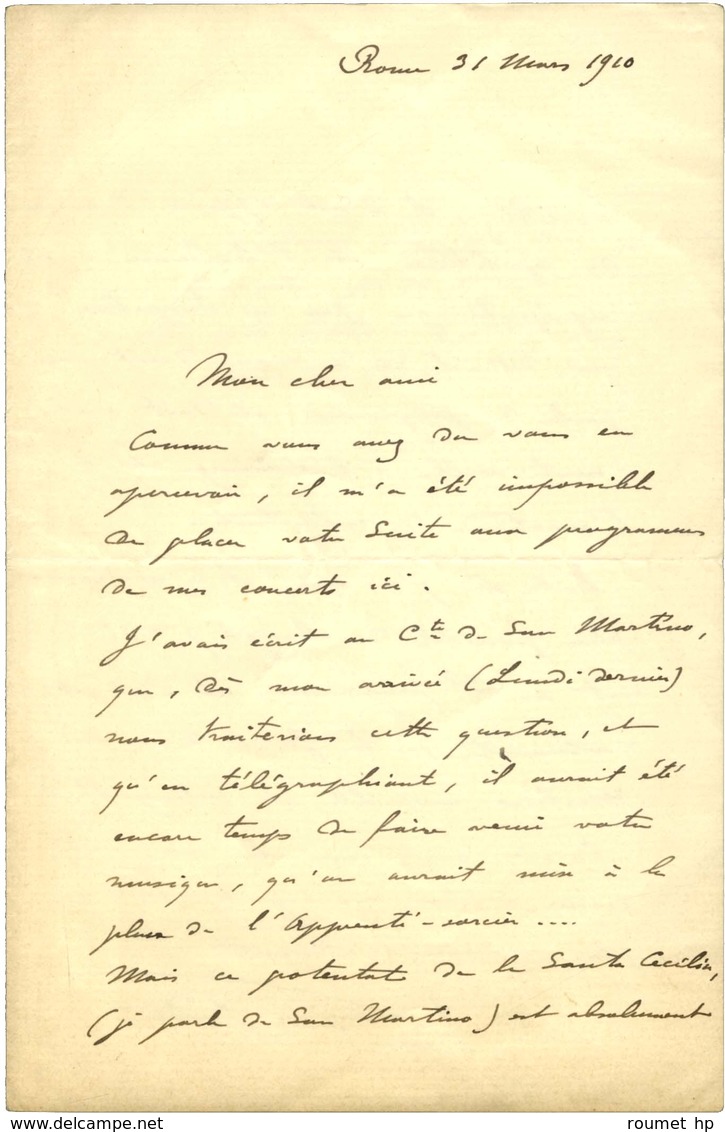 Rome 31 Mars 1910
Mon cher ami
Comme vous avez du vous en
apercevoir, il m'a été impossible
de placer votre Suite aux programmes
de mes concerts ici.
J'avais écrit au Cte de San Martino,
que, dès mon arrivée (Lundi dernier)
nous traiterions cette question, et
qu'en télégraphiant, il aurait été
encore temps de faire venir votre
musique, qu'on aurait mise à la
place de l'Apprenti-sorcier....
Mais ce potentat de la Santa Cecilia,
(je parle de San Martino) est absolument
roumet hp